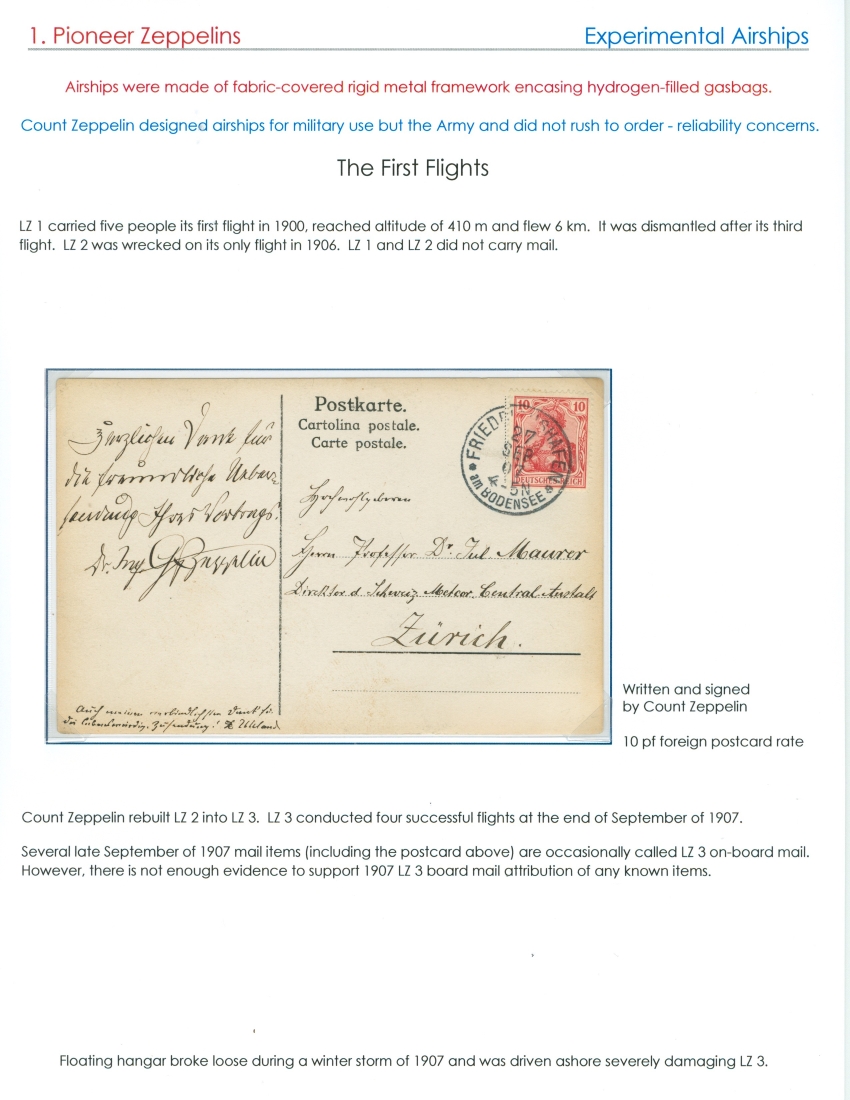 1. Pioneer Zeppelins
Experimental Airships
Airships were made of fabric-covered rigid metal framework encasing hydrogen-filled gasbags.
Count Zeppelin designed airships for military use but the Army and did not rush to order - reliability concerns.
The First Flights
LZ 1 carried five people its first flight in 1900, reached altitude of 410 m and flew 6 km. It was dismantled after its third
flight. LZ 2 was wrecked on its only flight in 1906. LZ 1 and LZ 2 did not carry mail.
Herzlichen Dank für
die freundliche Ueber-
sendung Ihres Vortrags.
Dr. Ing. GfZeppelin
Auch meinen verbindlichsten Dank für
die liebenswürdige Zusendung! Uhland
Postkarte.
Cartolina postale.
Carte postale.
10 10
DEUTSCHES REICH
FRIEDRICHSHAFEN
27
SEP
07
4-5N
am BODENSEE
Hochwohlgeboren
Herrn Professor Dr. Jul. Maurer
Direktor d. Schweiz. Meteor. Central-Anstalt
Zürich.
Written and signed
by Count Zeppelin
10 pf foreign postcard rate
Count Zeppelin rebuilt LZ 2 into LZ 3. LZ 3 conducted four successful flights at the end of September of 1907.
Several late September of 1907 mail items (including the postcard above) are occasionally called LZ 3 on-board mail.
However, there is not enough evidence to support 1907 LZ 3 board mail attribution of any known items.
Floating hangar broke loose during a winter storm of 1907 and was driven ashore severely damaging LZ 3.